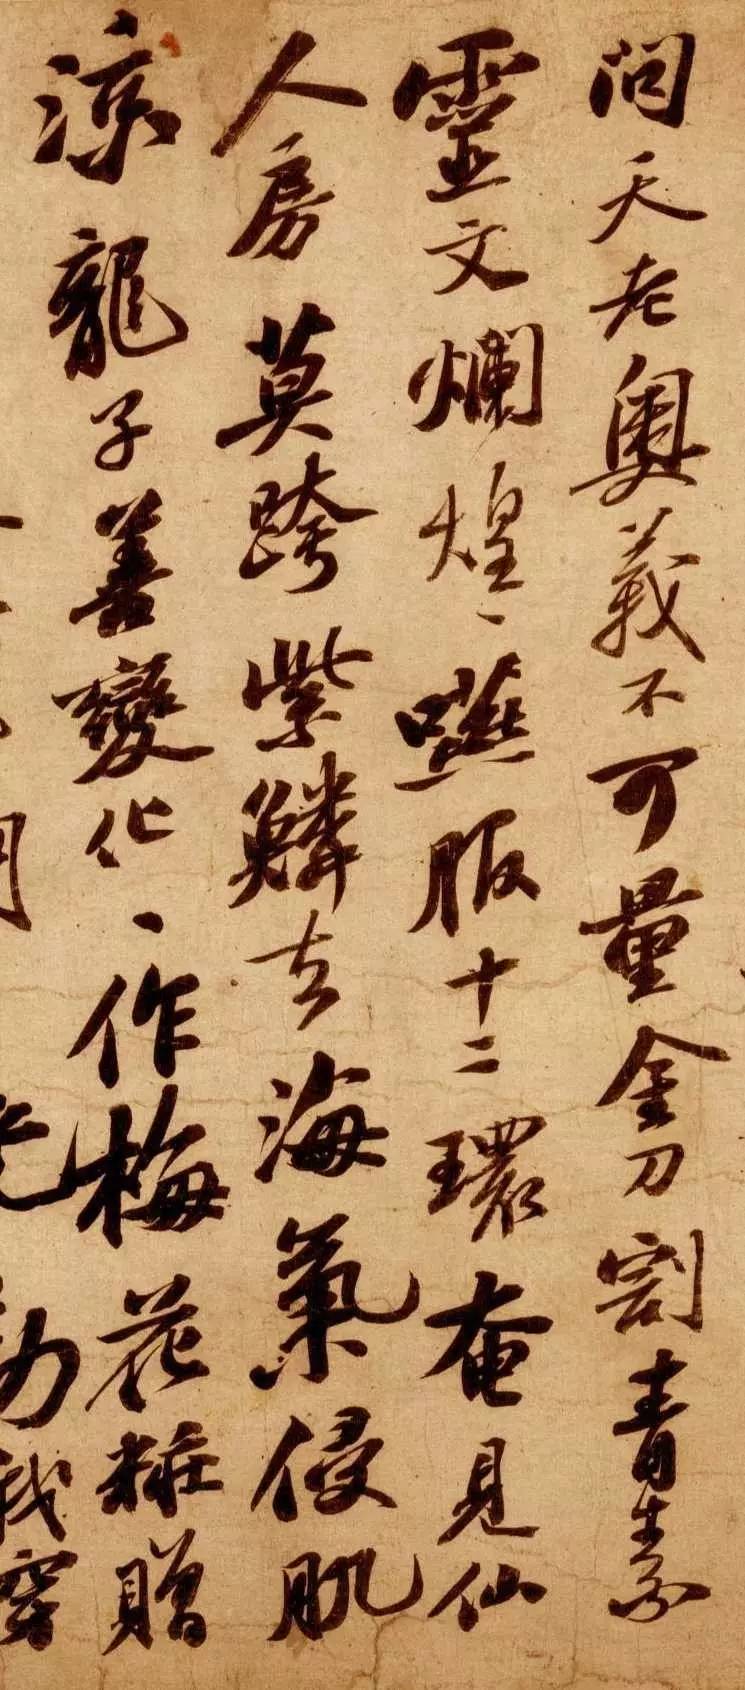 问天老奥義不可量金刀割青素
靈文爛煌煌嚥服十二環奄見仙
人房莫跨紫鱗去海氣侵肌
涼龍子善變化化作梅花粧贈